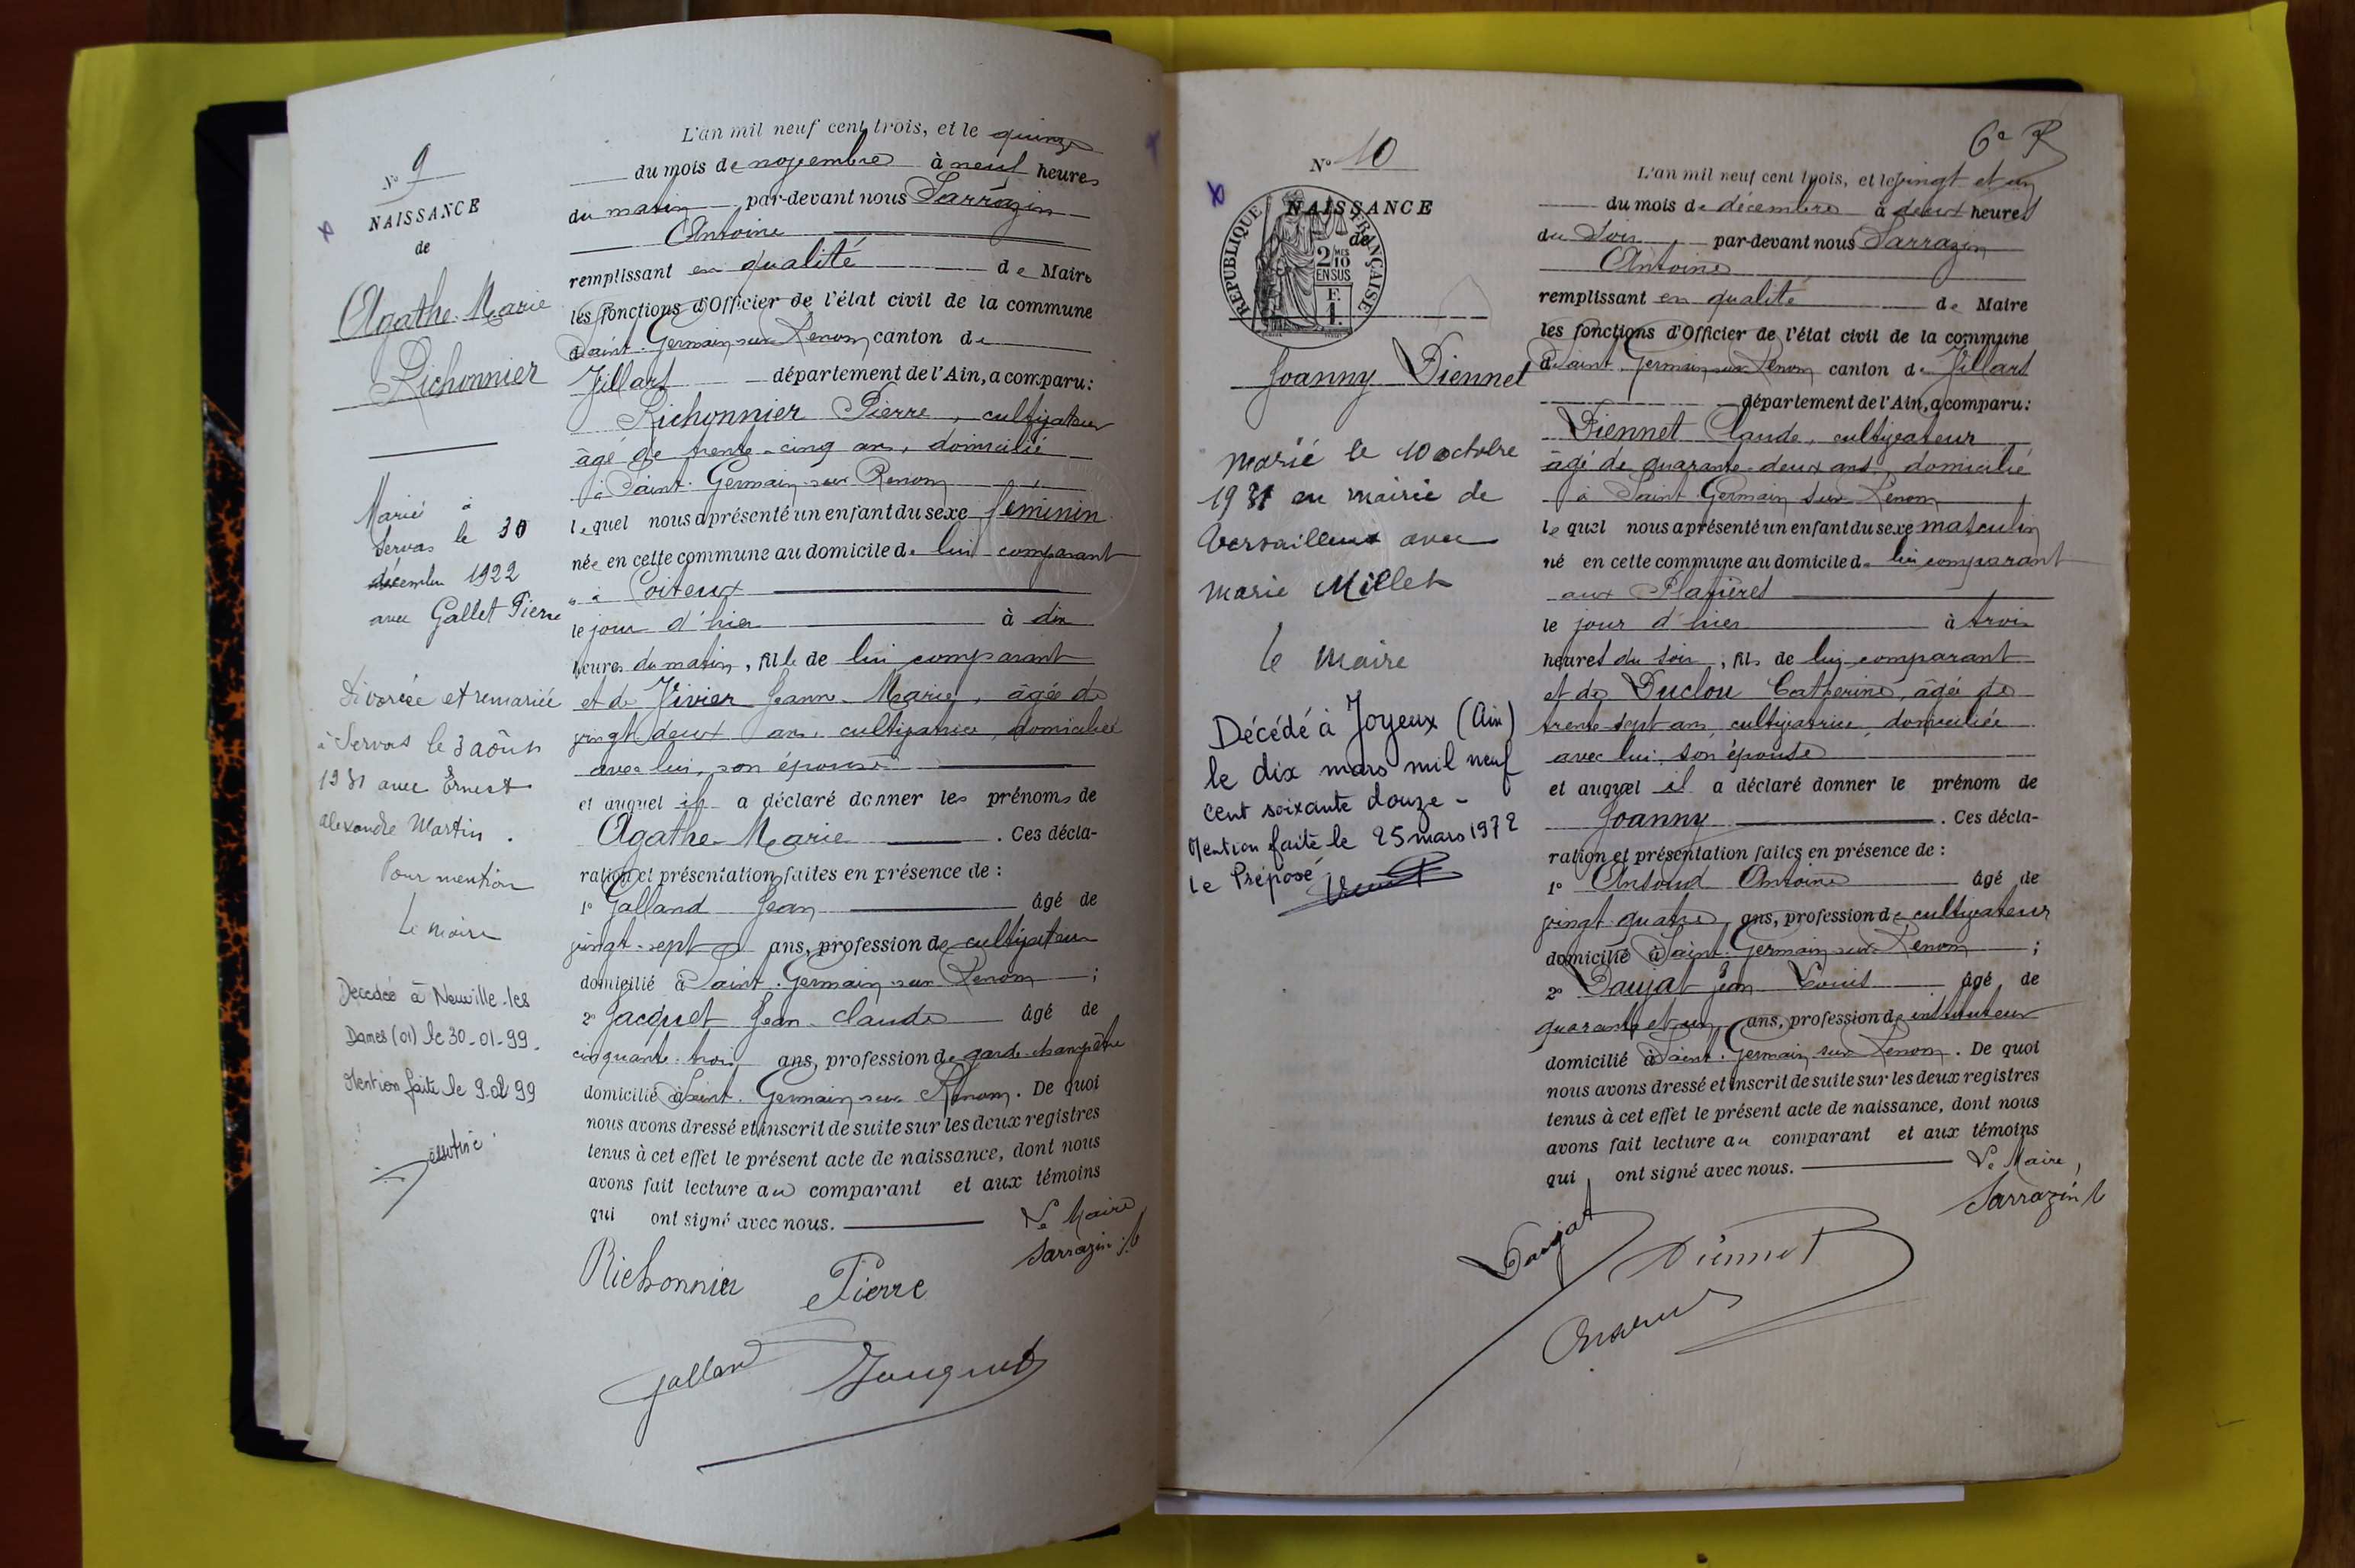 N° 9
NAISSANCE
de
Agathe-Marie
Richonnier
Marié à
Servas le 30
décembre 1922
avec Gallet Pierre
divorcée et remariée
à Servas le 3 août
1931 avec Ernest
alexandre Martin.
Pour mention
Le maire
Décédée à Neuville-les
Dames (01) le 30-01-99.
Mention faite le 9.02 99
L'an mil neuf cent trois, et le quinze
du mois de novembre à neuf heures
du matin par-devant nous Sarrazin
Antoine
remplissant en qualité de Maire
les fonctions d'Officier de l'état civil de la commune
Saint-Germain-sur-Renom, canton de
Villars département de l'Ain, a comparu:
Richonnier Pierre, cultivateur
âgé de trente-cinq ans, domicilié
à Saint-Germain-sur Renom
lequel nous a présenté un enfant du sexe féminin
née en cette commune au domicile de lui comparant
à Coiteux
le jour d'hier à dix
heures du matin, fille de lui comparant
et de Vivier Jeanne-Marie, âgée de
vingt deux ans, cultivatrice, domiciliée
avec lui, son épouse
et auquel il a déclaré donner les prénoms de
Agathe-Marie. Ces décla-
ration et présentation faites en présence de :
1° Galland Jean âgé de
vingt-sept ans, profession de cultivateur
domicilié à Saint-Germain-sur-Renom ;
2° Jacquet Jean-Claude âgé de
cinquante-trois ans, profession de garde-champêtre
domicilié à Saint-Germain-sur-Renom. De quoi
nous avons dressé et inscrit de suite sur les deux registres
tenus à cet effet le présent acte de naissance, dont nous
avons fait lecture au comparant et aux témoins
qui ont signé avec nous. Le Maire
Sarrazin
Richonnier Pierre
Galland Jacquet
6e R
N° 10
NAISSANCE
de
RÉPUBLIQUE FRANÇAISE
2 MES
10
EN SUS
F.
1.
Joanny Diennet
marié le 10 octobre
1931 en mairie de
Versailleux avec
Marie Millet
le Maire
Décédé à Joyeux (Ain)
le dix mars mil neuf
cent soixante douze -
Mention faite le 25 mars 1972
Le Préposé
L'an mil neuf cent trois, et le vingt et un
du mois de décembre à deux heures
du soir par-devant nous Sarrazin
Antoine
remplissant en qualité de Maire
les fonctions d'Officier de l'état civil de la commune
de Saint-Germain-sur-Renom canton de Villars
département de l'Ain, a comparu:
Diennet Claude, cultivateur
âgé de quarante-deux ans, domicilié
à Saint-Germain sur-Renom
lequel nous a présenté un enfant du sexe masculin
né en cette commune au domicile de lui comparant
aux Planières
le jour d'hier à trois
heures du soir, fils de lui comparant
et de Duclou Catherine, âgée de
trente-sept ans, cultivatrice, domiciliée
avec lui, son épouse
et auquel il a déclaré donner le prénom de
Joanny. Ces décla-
ration et présentation faites en présence de :
1° Antoine âgé de
vingt-quatre ans, profession de cultivateur
domicilié à Saint-Germain-sur-Renom ;
2° Daujat Jean Louis âgé de
quarante et un ans, profession de instituteur
domicilié à Saint-Germain sur Renom. De quoi
nous avons dressé et inscrit de suite sur les deux registres
tenus à cet effet le présent acte de naissance, dont nous
avons fait lecture au comparant et aux témoins
qui ont signé avec nous. Le Maire,
Sarrazin
Daujat Diennet